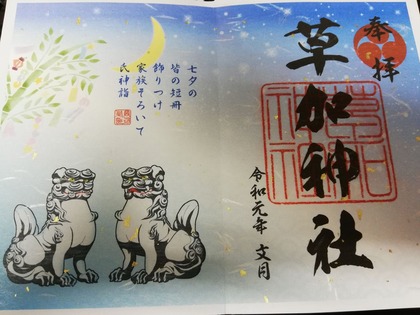 奉拝
草加神社
令和元年 文月
七夕の
皆の短冊
飾りつけ
家族そろいて
氏神詣